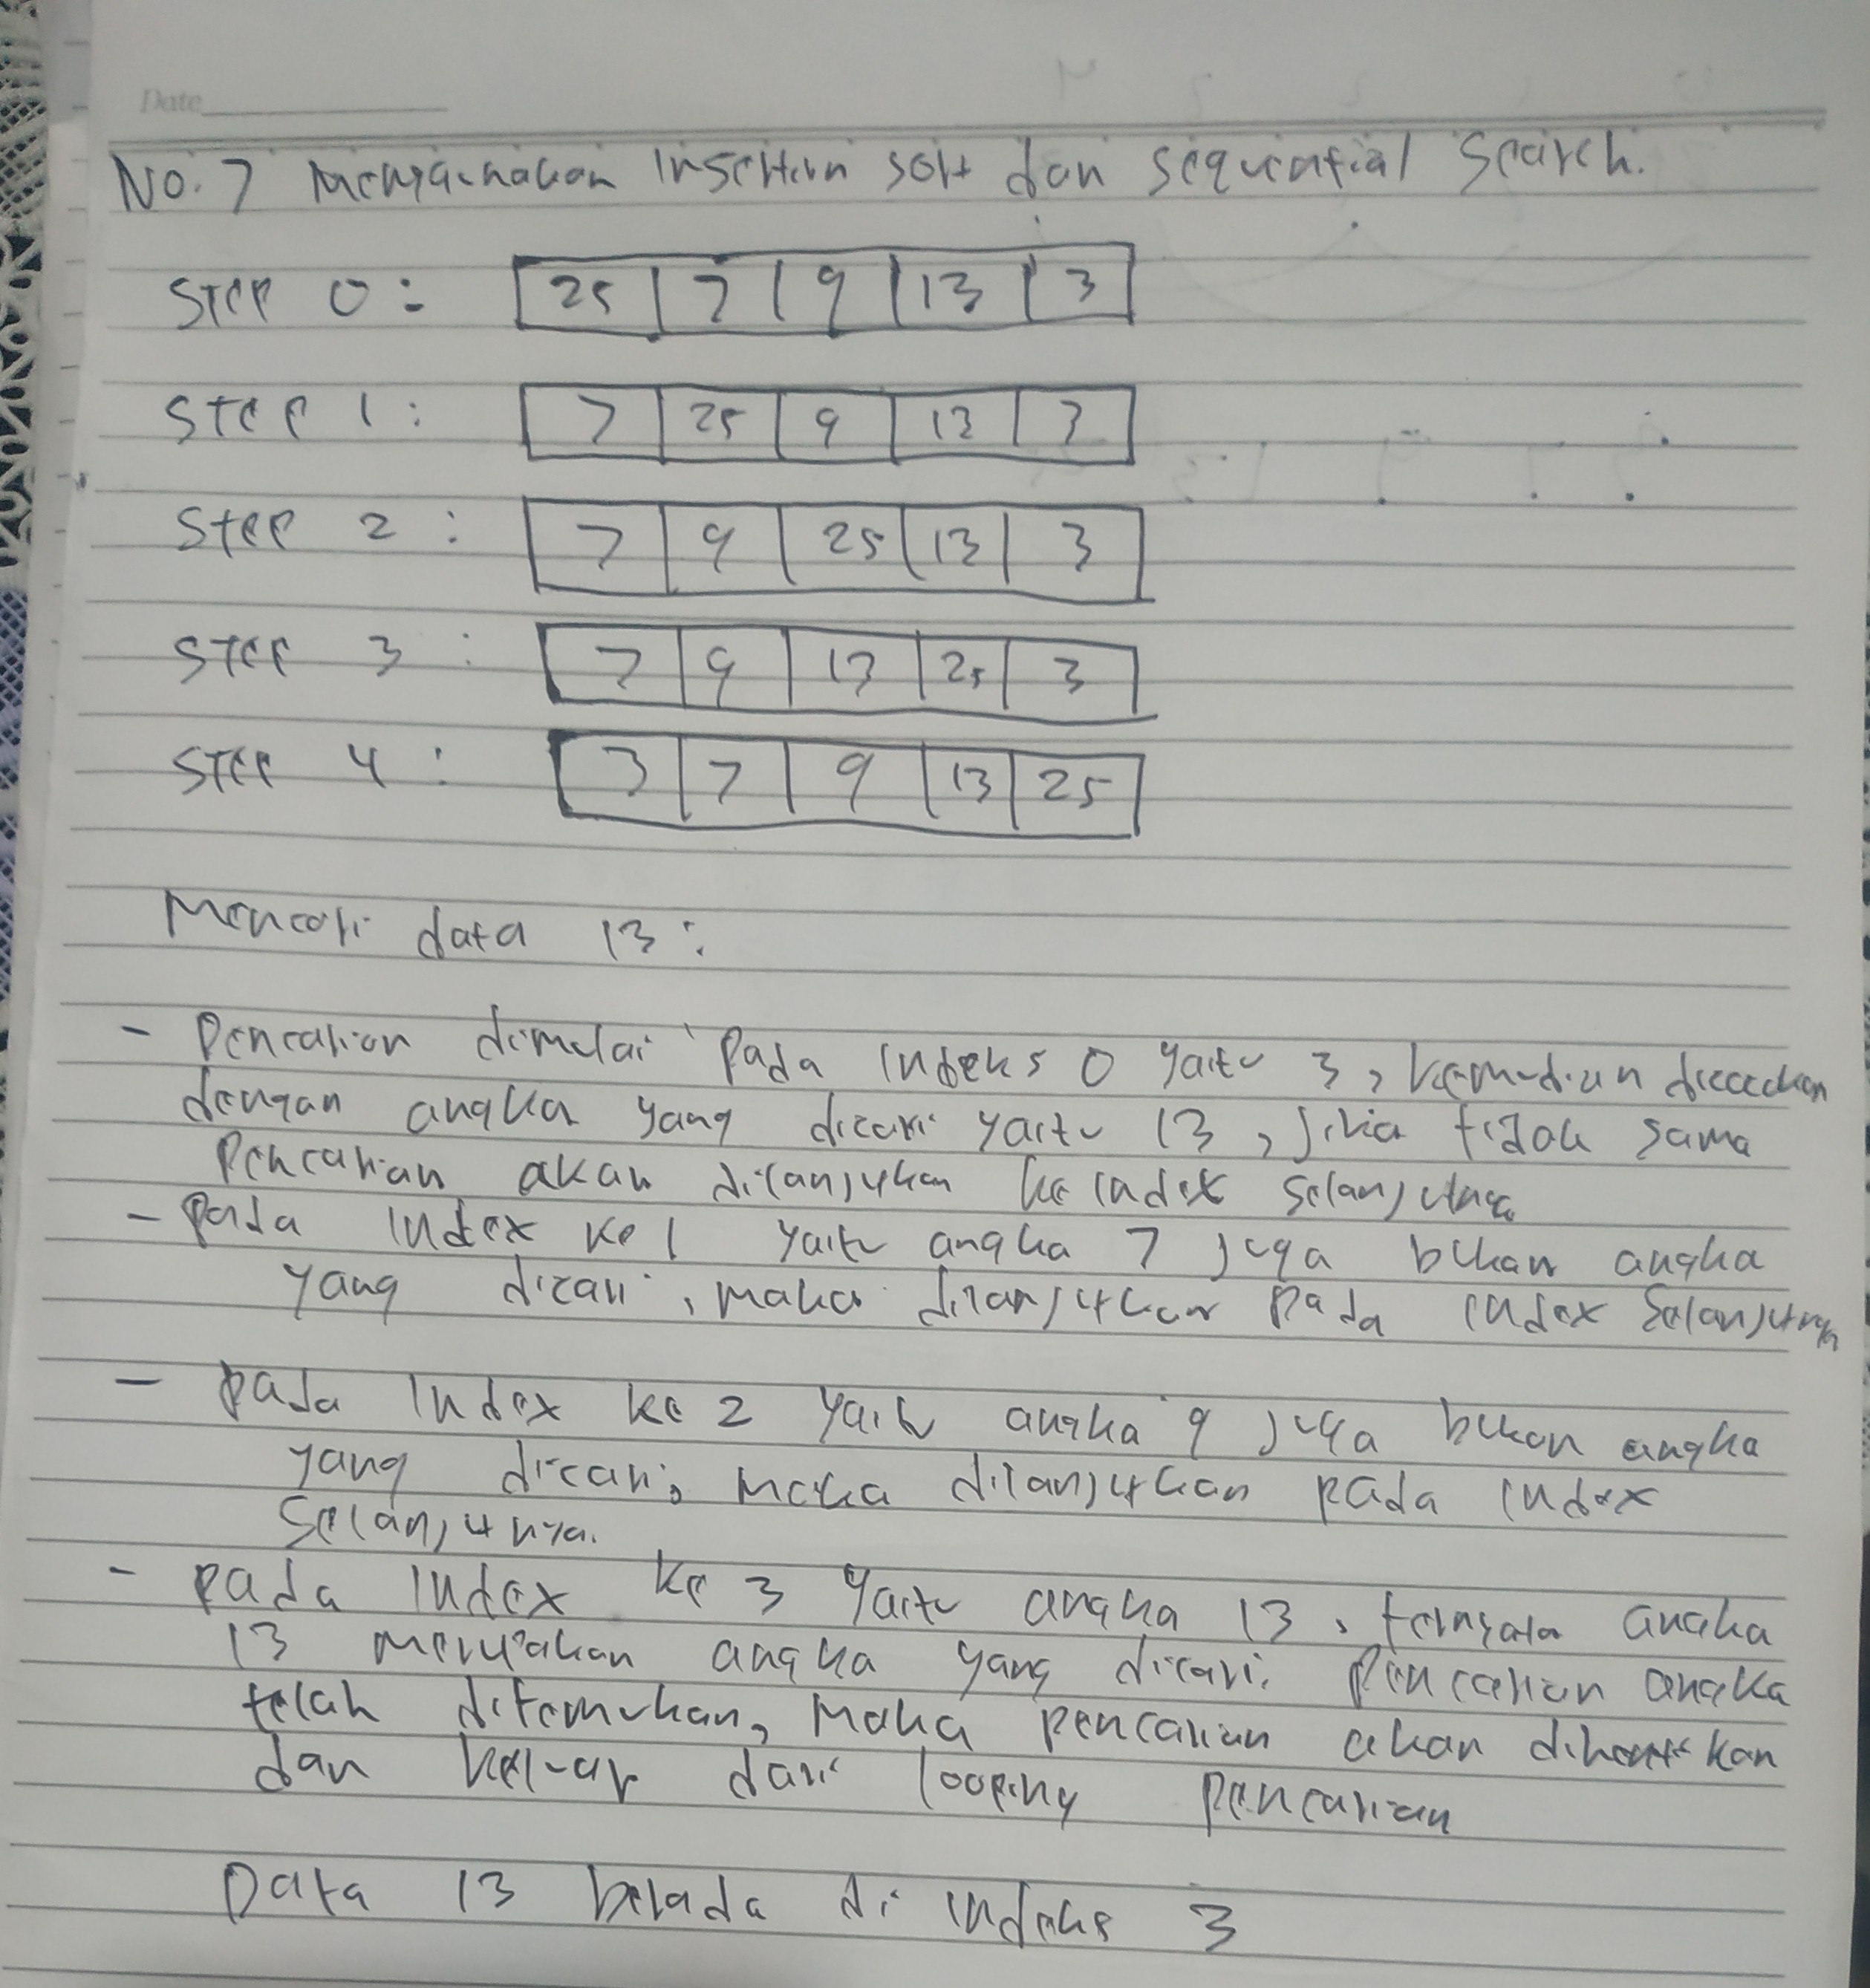 Date
No. 7 Menggunakan Insertion sort dan sequential search.
Step 0 : 25 7 9 13 3
Step 1 : 7 25 9 13 3
Step 2 : 7 9 25 13 3
Step 3 : 7 9 13 25 3
Step 4 : 3 7 9 13 25
Mencari data 13 :
- Pencarian dimulai pada indeks 0 yaitu 3, kemudian dicocokan
dengan angka yang dicari yaitu 13, jika tidak sama
Pencarian akan dilanjutkan ke index selanjutnya
- Pada index ke 1 yaitu angka 7 juga bukan angka
yang dicari, maka dilanjutkan pada index selanjutnya
- pada index ke 2 yaitu angka 9 juga bukan angka
yang dicari, maka dilanjutkan pada index
selanjutnya.
- pada index ke 3 yaitu angka 13, ternyata angka
13 merupakan angka yang dicari. Pencarian angka
telah ditemukan, maka pencarian akan dihentikan
dan keluar dari looping pencarian
Data 13 berada di indeks 3